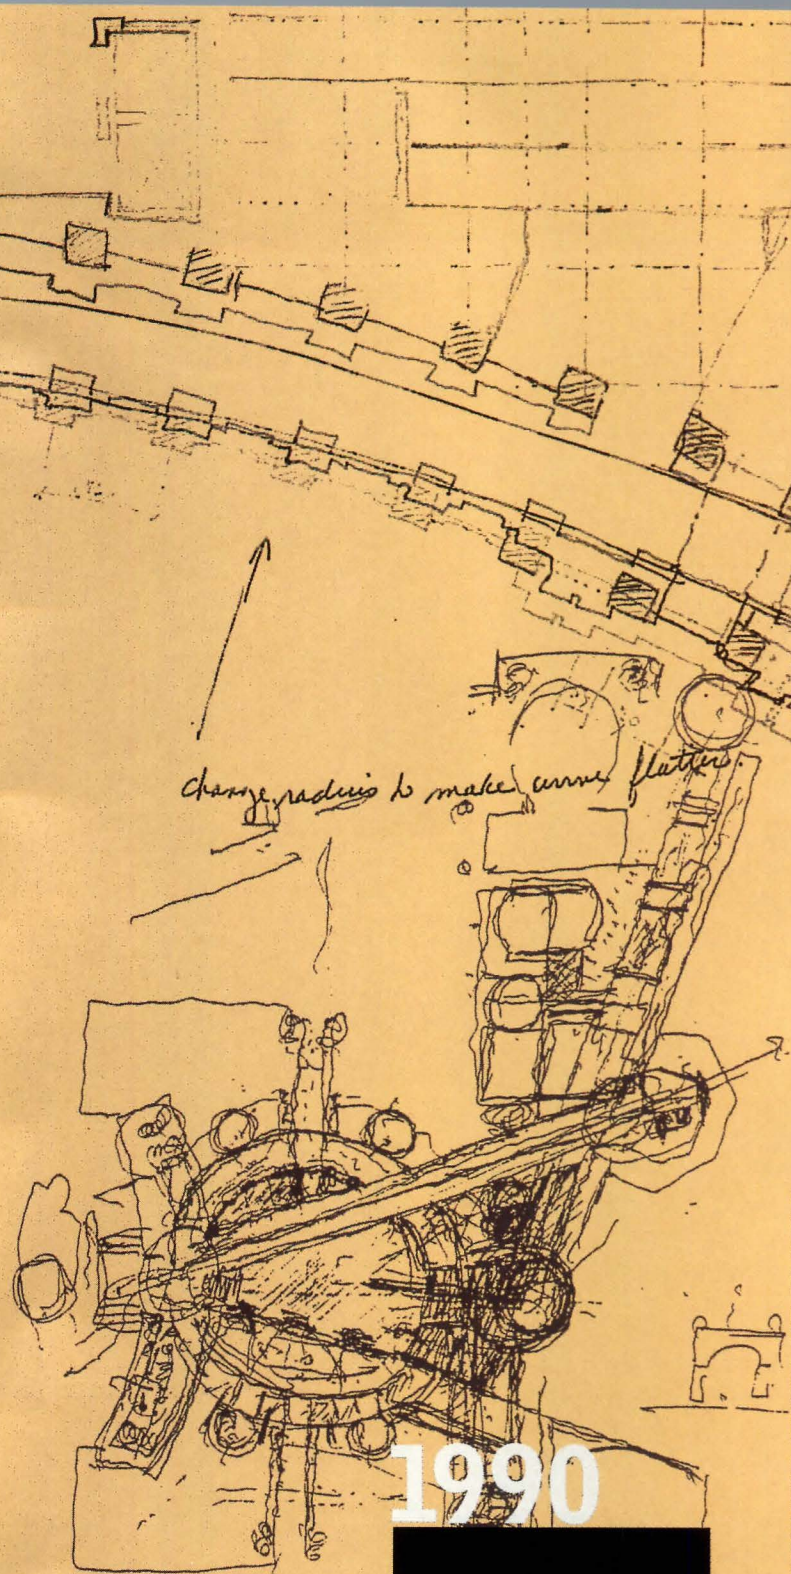 change radius to make curve flatter.
1990